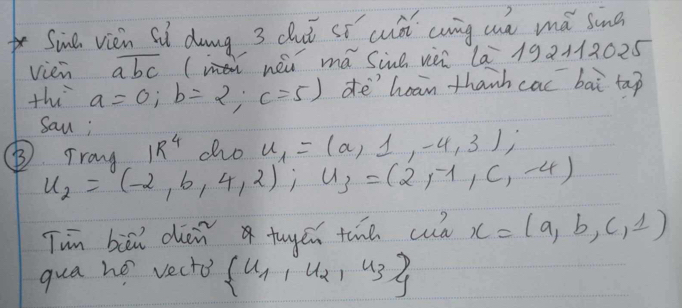 * Sinh viên sử dụng 3 chữ số cuối cùng của mã sinh
viên abc (nếu mã sinh viên là 192112025
thì a = 0; b = 2; c = 5) để hoàn thành các bài tập
sau:
③ Trong |R⁴ cho u₁ = (a, 1, -4, 3);
u₂ = (-2, b, 4, 2); u₃ = (2, -1, c, -4)
Tìm biểu diễn tuyến tính của x = (a, b, c, 1)
qua hệ vectơ {u₁, u₂, u₃}